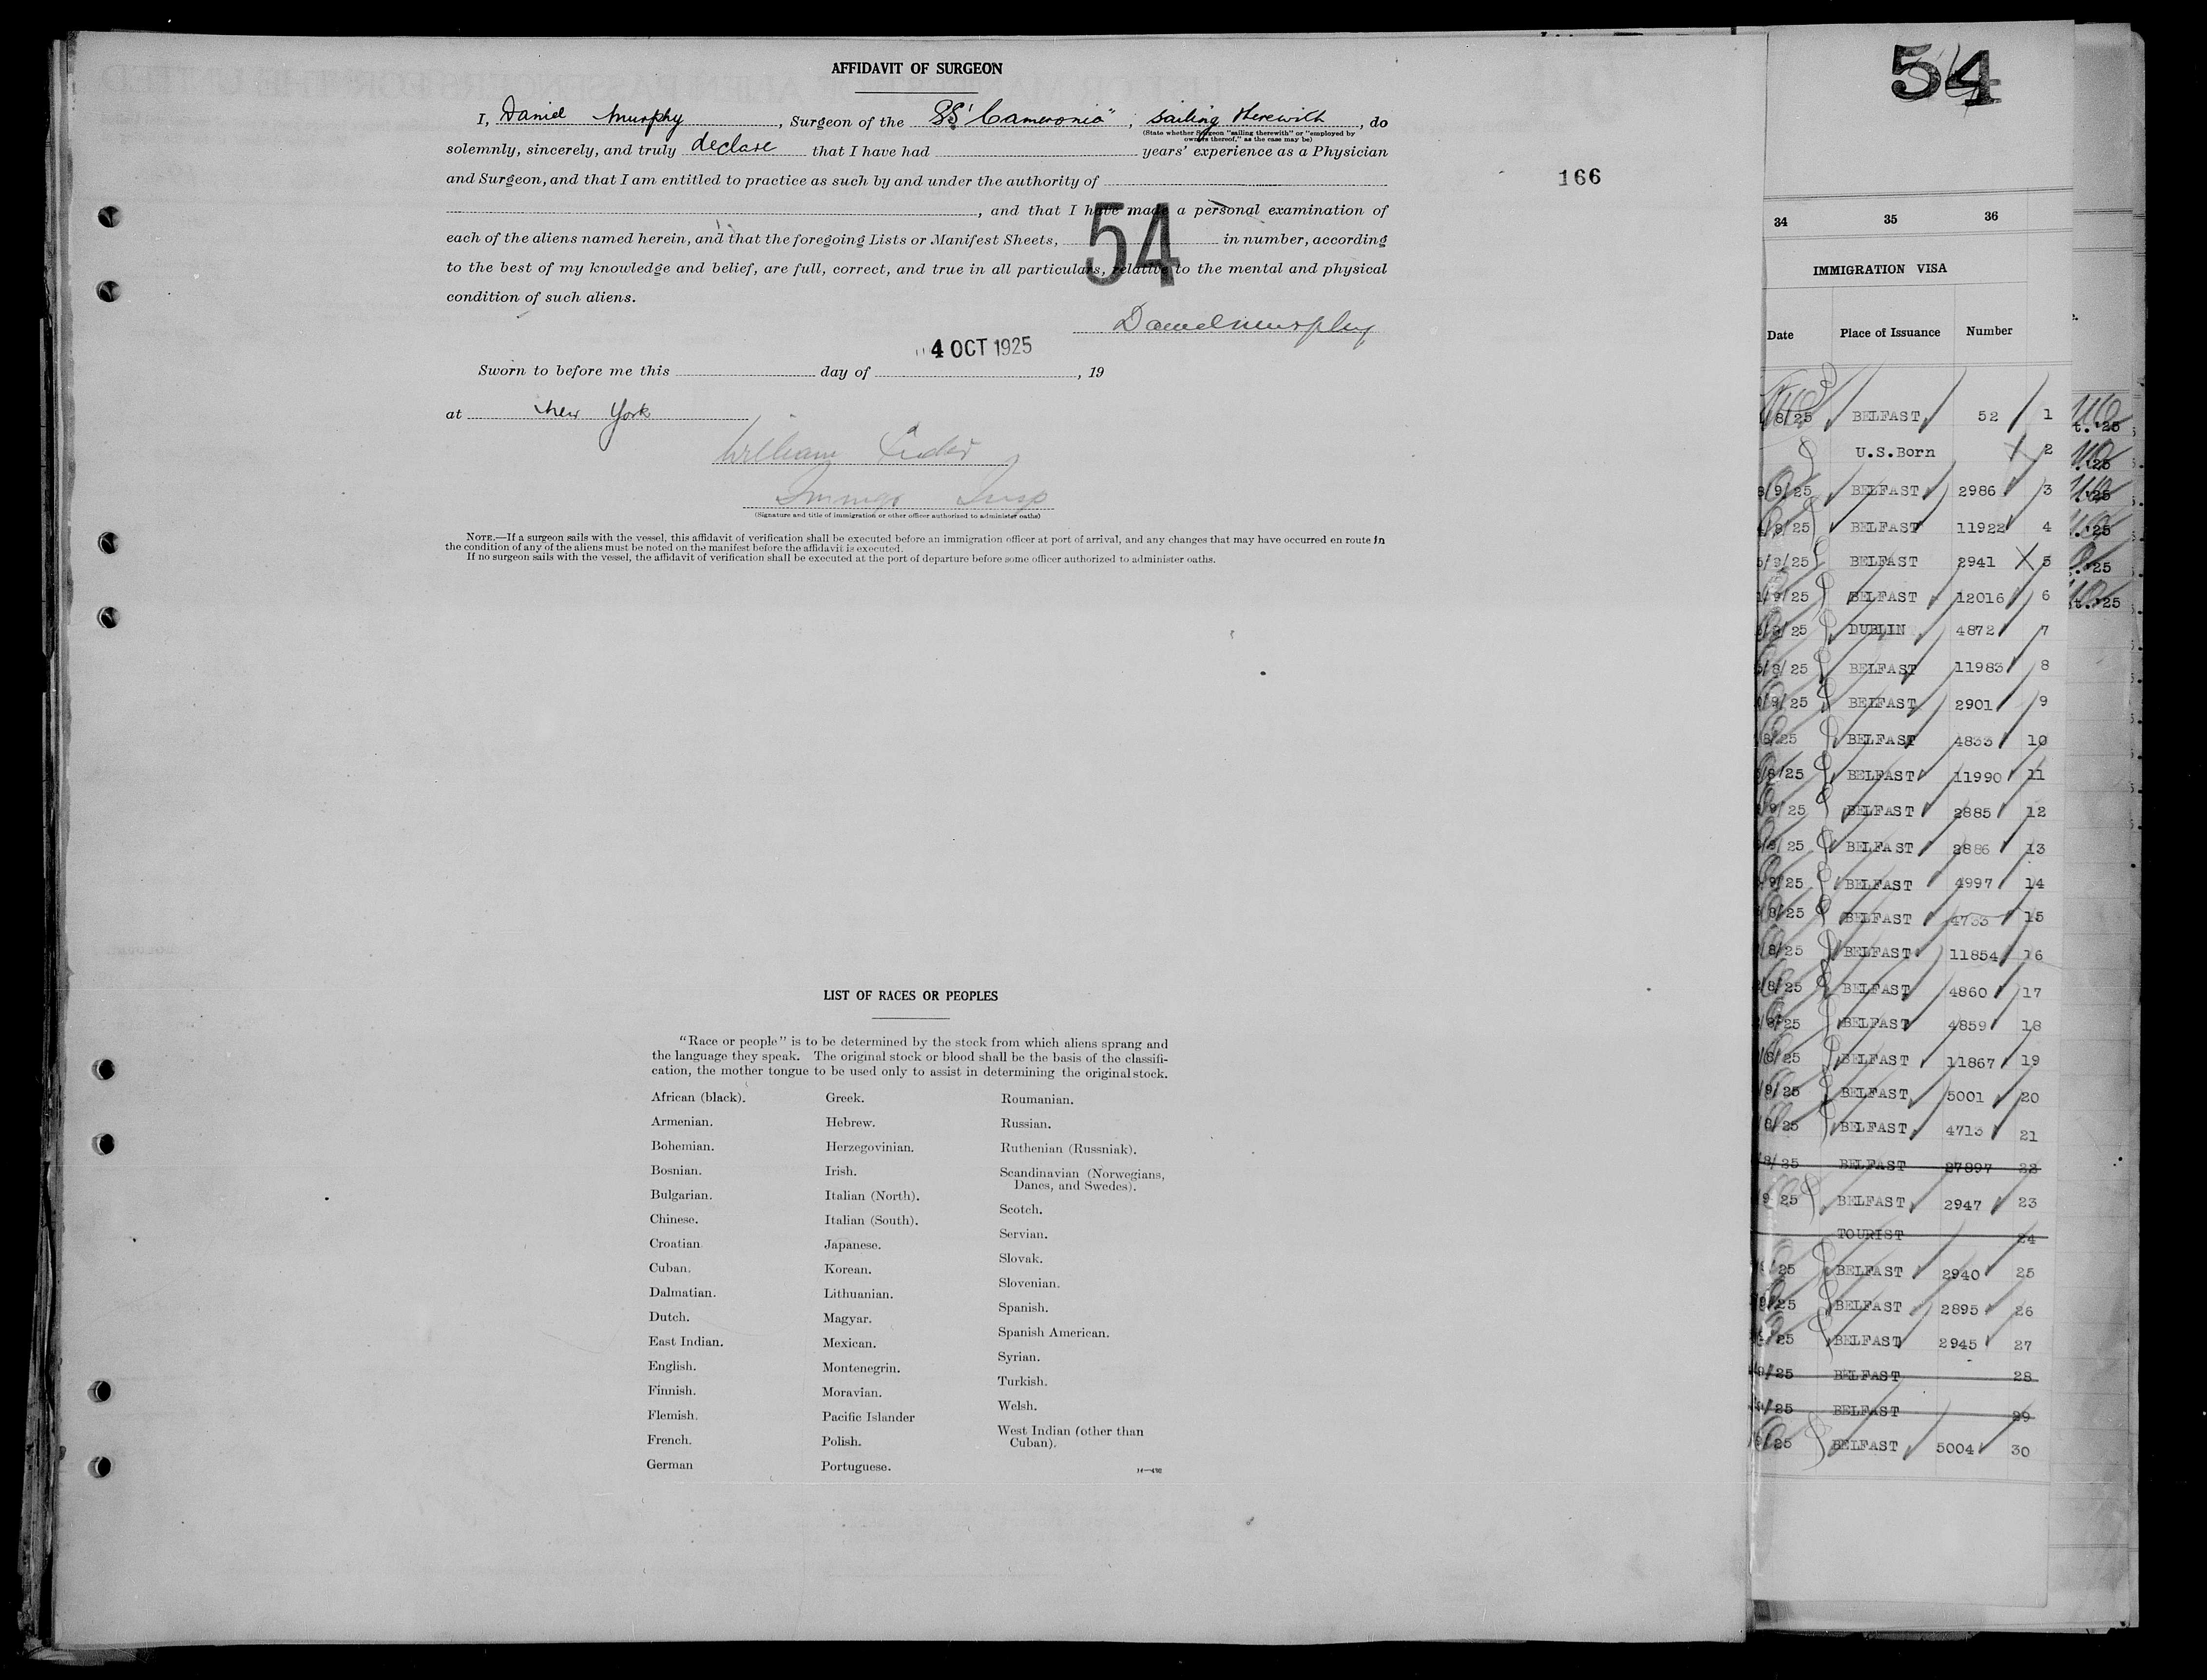 AFFIDAVIT OF SURGEON
I, Daniel Murphy, Surgeon of the SS "Cameronia", sailing therewith, do
(State whether Surgeon "sailing therewith" or "employed by
owners thereof," as the case may be)
solemnly, sincerely, and truly declare that I have had years' experience as a Physician
and Surgeon, and that I am entitled to practice as such by and under the authority of
, and that I have made a personal examination of
each of the aliens named herein, and that the foregoing Lists or Manifest Sheets, 54 in number, according
to the best of my knowledge and belief, are full, correct, and true in all particulars, relative to the mental and physical
condition of such aliens.
Daniel Murphy
4 OCT 1925
Sworn to before me this day of , 19
at New York
William
Immigr Insp
(Signature and title of immigration or other officer authorized to administer oaths)
NOTE.—If a surgeon sails with the vessel, this affidavit of verification shall be executed before an immigration officer at port of arrival, and any changes that may have occurred en route in
the condition of any of the aliens must be noted on the manifest before the affidavit is executed.
If no surgeon sails with the vessel, the affidavit of verification shall be executed at the port of departure before some officer authorized to administer oaths.
166
LIST OF RACES OR PEOPLES
"Race or people" is to be determined by the stock from which aliens sprang and
the language they speak. The original stock or blood shall be the basis of the classifi-
cation, the mother tongue to be used only to assist in determining the original stock.
African (black).
Armenian.
Bohemian.
Bosnian.
Bulgarian.
Chinese.
Croatian
Cuban.
Dalmatian.
Dutch.
East Indian.
English.
Finnish.
Flemish.
French.
German
Greek.
Hebrew.
Herzegovinian.
Irish.
Italian (North).
Italian (South).
Japanese.
Korean.
Lithuanian.
Magyar.
Mexican.
Montenegrin.
Moravian.
Pacific Islander
Polish.
Portuguese.
Roumanian.
Russian.
Ruthenian (Russniak).
Scandinavian (Norwegians,
Danes, and Swedes).
Scotch.
Servian.
Slovak.
Slovenian.
Spanish.
Spanish American.
Syrian.
Turkish.
Welsh.
West Indian (other than
Cuban).
54
34 35 36
IMMIGRATION VISA
Date Place of Issuance Number
8/25 BELFAST 52 1
U.S.Born 2
9/25 BELFAST 2986 3
8/25 BELFAST 11922 4
9/25 BELFAST 2941 5
9/25 BELFAST 12016 6
25 DUBLIN 4872 7
25 BELFAST 11983 8
9/25 BELFAST 2901 9
8/25 BELFAST 4833 10
8/25 BELFAST 11990 11
9/25 BELFAST 2885 12
25 BELFAST 2886 13
9/25 BELFAST 4997 14
8/25 BELFAST 4733 15
8/25 BELFAST 11854 16
8/25 BELFAST 4860 17
8/25 BELFAST 4859 18
8/25 BELFAST 11867 19
9/25 BELFAST 5001 20
8/25 BELFAST 4713 21
8/25 BELFAST 27897 22
9 25 BELFAST 2947 23
TOURIST 24
25 BELFAST 2940 25
9/25 BELFAST 2895 26
25 BELFAST 2945 27
9/25 BELFAST 28
25 BELFAST 29
25 BELFAST 5004 30